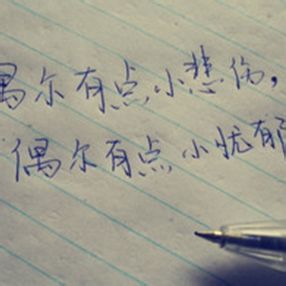 偶尔有点小悲伤,
偶尔有点小忧郁